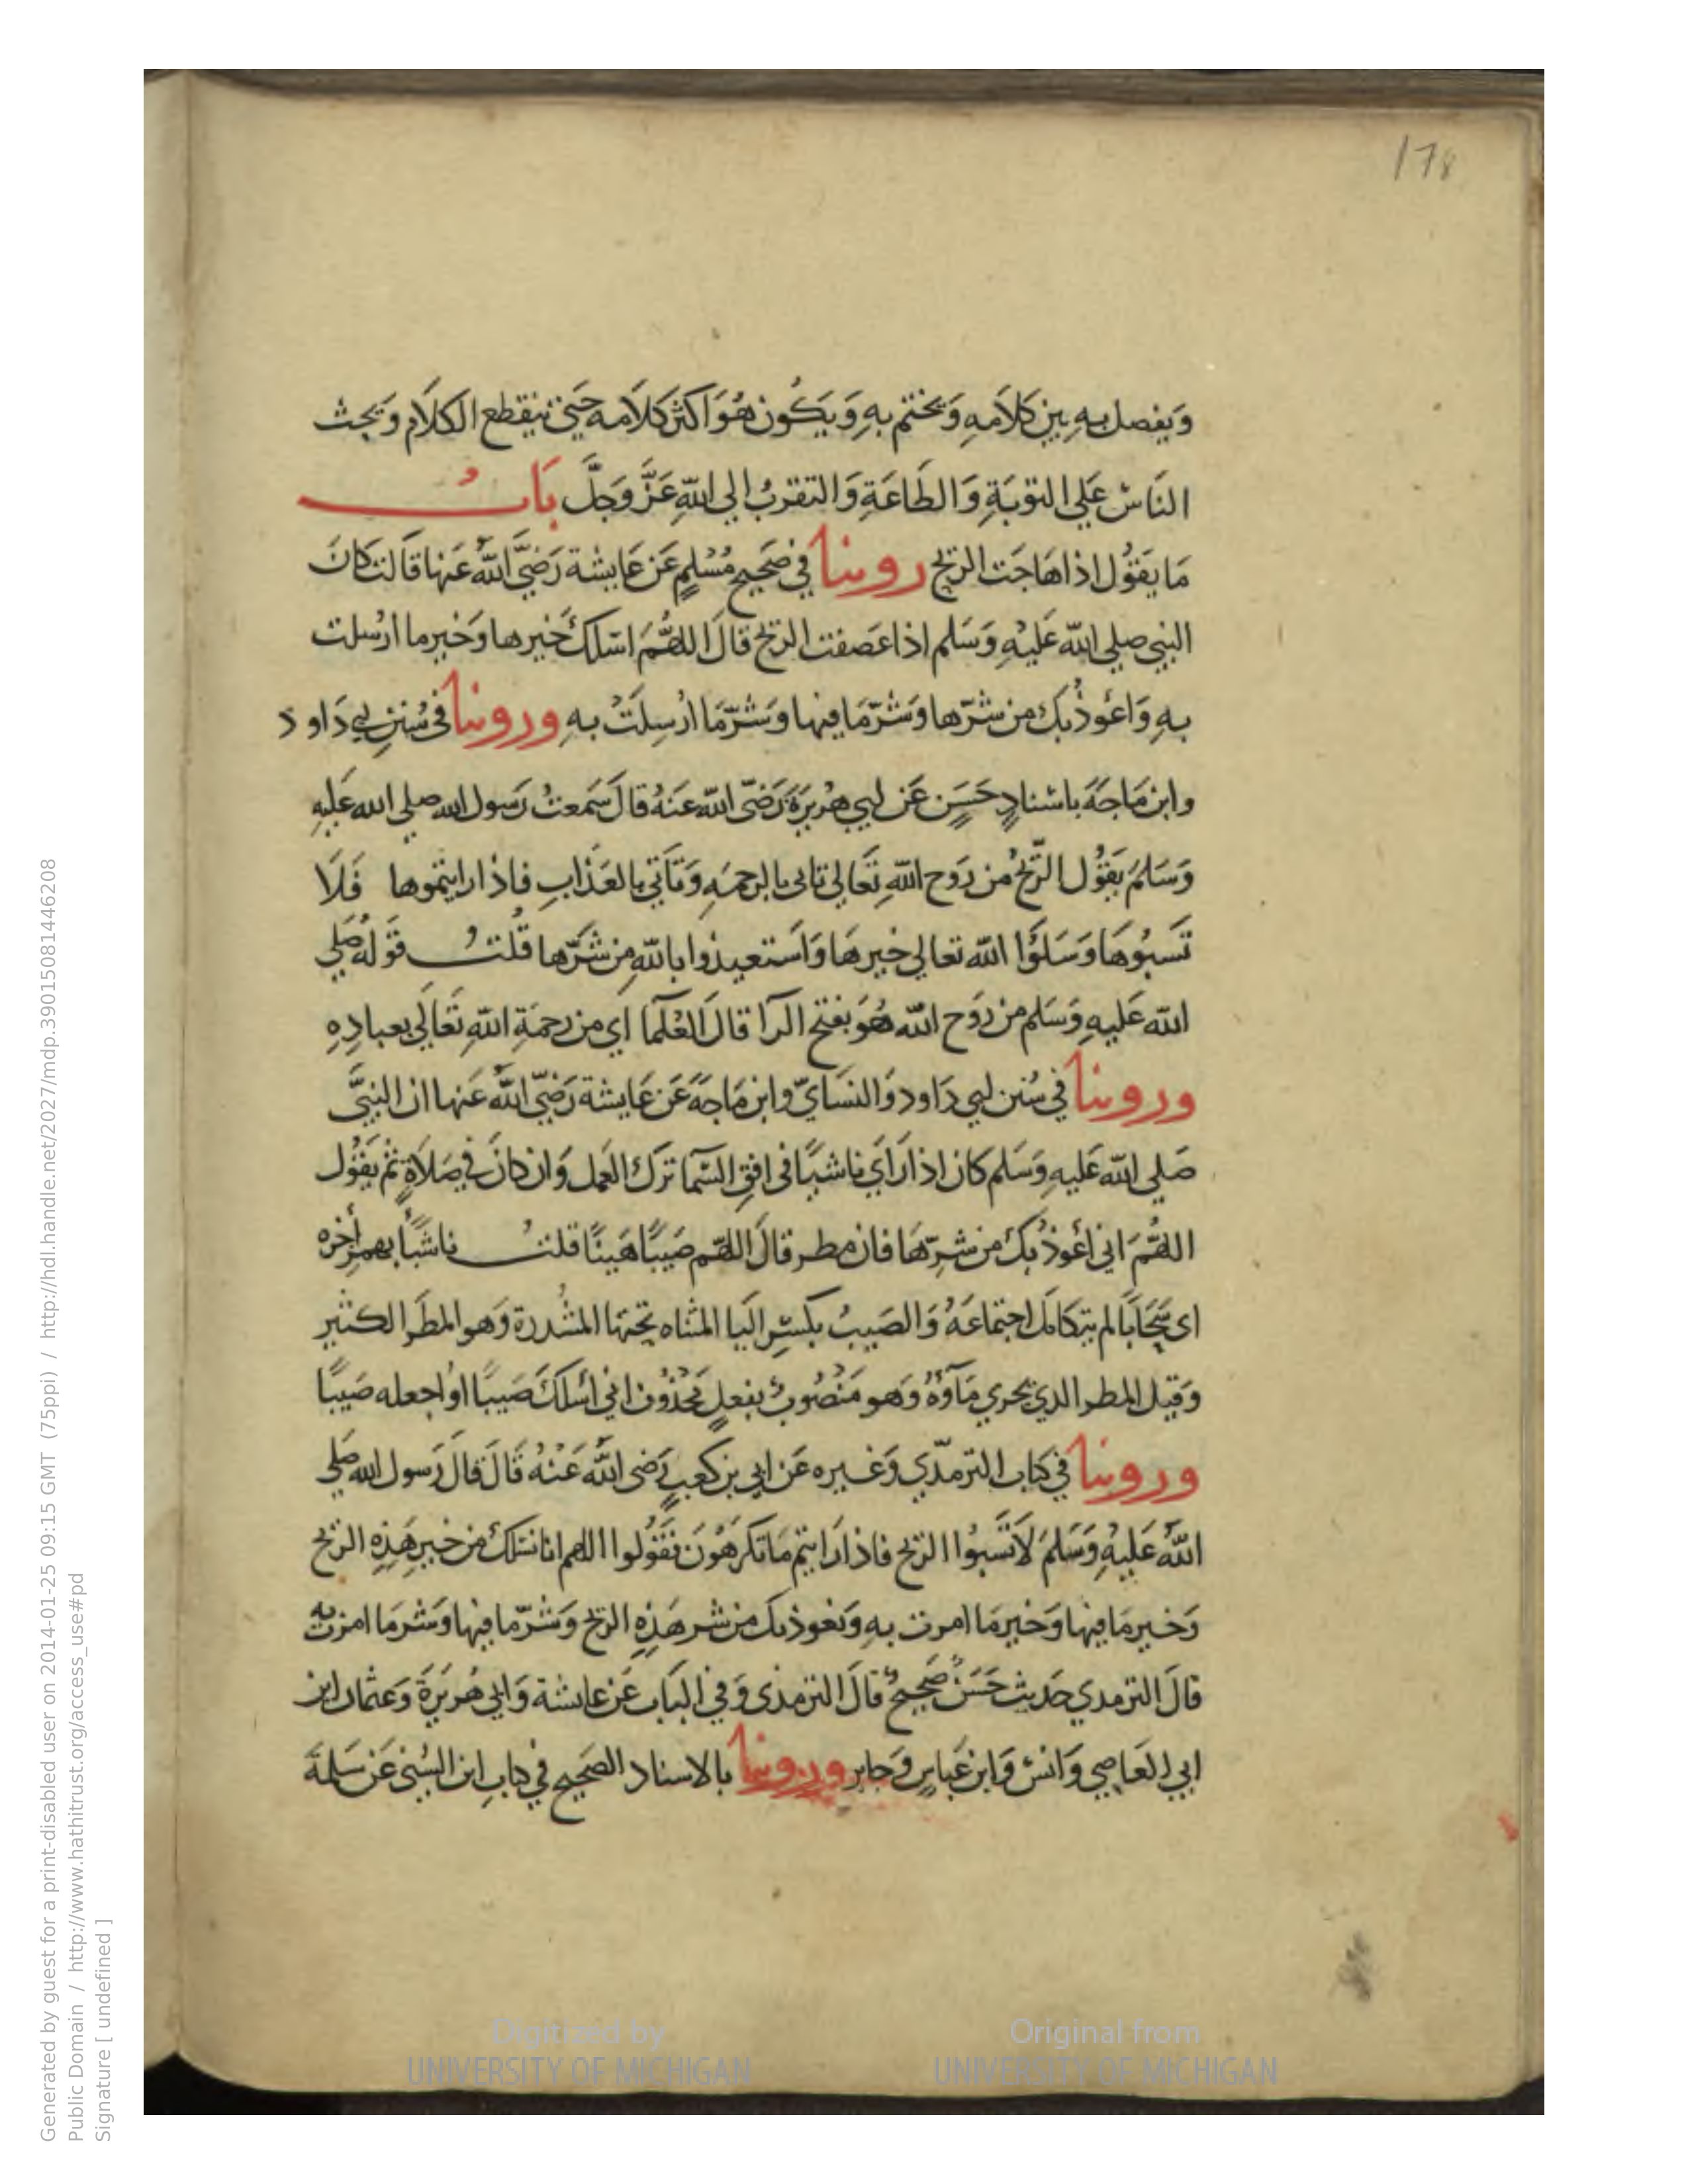 178
وَيفصل بهِ بين كَلاَمهِ وَيختم بهِ وَيَكُون هُوَ اكثر كلاَمه حَتي ينقطع الكلاَم وَيحث
النَاس عَلي التوبَةِ وَالطَاعَةِ وَالتقربُ الي اللهِ عَزَّ وَجَلَّ بَابُ
مَا يَقوُل اذا هَاجَت الريح روينا في صَحيح مُسْلمٍ عَن عَايشة رَضيَّ اللهُ عَنها قَالت كَانَ
النبي صلي الله عَليْهِ وَسَلم اذا عَصفت الريح قالَ اللهُمَّ اسَلكُ خَيرها وَخَير ما ارْسلت
بهِ وَاعُوذُ بك من شرّها وَشرّ مَا فيها وَشرّ مَا ارْسِلَتْ بهِ وروينا في سُنن ابي دَاود
وابن مَاجَةَ باسْنادٍ حَسَنٍ عَن ابي هُريرَةَ رَضيّ الله عَنهُ قالَ سَمعتُ رَسول الله صلي الله عَليهِ
وَسَلمَ يَقوُل الرّيحُ من رَوح اللهِ تَعَالي تاتي بالرحمَةِ وَتَأتي بالعَذابِ فاذا رايتموها فَلَا
تَسبوُهَا وَسَلوَا الله تعالي خيرهَا وَاسَتعيذوا باللهِ من شَرّها قُلتُ قوَلهُ صَلي
الله عَليهِ وَسَلم من رَوح الله هُوَ بفتح الرآ قالَ العُلمَا اي من رحمَةِ اللهِ تَعَالَي بعبادِهِ
وروينا في سُنن ابي دَاود وَالنسَايّ وابن مَاجَةَ عَن عَايشة رَضيّ اللهُ عَنها ان النبيَّ
صَلي الله عَليهِ وَسَلم كان اذا رَايَ ناشئًا في افقِ السّمَا تَركَ العَمل وَان كانَ في صَلاَةٍ ثم يَقوُل
اللهُمَّ اني اعُوذُ بكَ من شرّهَا فان مطر قالَ اللهم صَيبًا هَنيئًا قلتُ ناشئًا بهمز أخره
اي سَحَابًا لم يتكامَل اجتماعَهُ وَالصَيبُ بكسْرِ اليَا المثناه تحتها المشددة وَهو المطَر الكثير
وَقيل المطر الذي يجري مَاؤُهُ وَهو مَنصُوبٌ بفعلٍ مَحذُوف اني اسْلكَ صَيبًا او اجعله صَيبًا
وروينا في كتاب الترمذّي وَغيره عَن ابي بن كعبٍ رَضي اللهُ عَنهُ قَالَ قالَ رَسول الله صَلي
اللهُ عَليْهِ وَسَلمَ لاَ تَسبوُا الريح فاذا رَايتم مَا تكرَهوُنَ فقوُلوا اللهم انا نسَلكُ من خير هَذِهِ الريح
وَخير مَا فيها وَخير مَا امرت بهِ وَنعوذ بك من شر هَذِهِ الريح وَشرّ ما فيها وَشر مَا امرت به
قالَ الترمدي حَديث حَسَنٌ صَحيحٌ قالَ الترمذي وَفي البَاب عَن عايشة وَابي هُريرَةَ وَعثمان ابن
ابي العَاصي وَانس وَابن عَباسٍ وَجابر وروينا بالاسناد الصَحيح في كتابِ ابن السُني عَن سَلمَةَ
Generated by guest for a print-disabled user on 2014-01-25 09:15 GMT (75ppi) / http://hdl.handle.net/2027/mdp.39015081446208
Public Domain / http://www.hathitrust.org/access_use#pd
Signature [ undefined ]
Digitized by
UNIVERSITY OF MICHIGAN
Original from
UNIVERSITY OF MICHIGAN